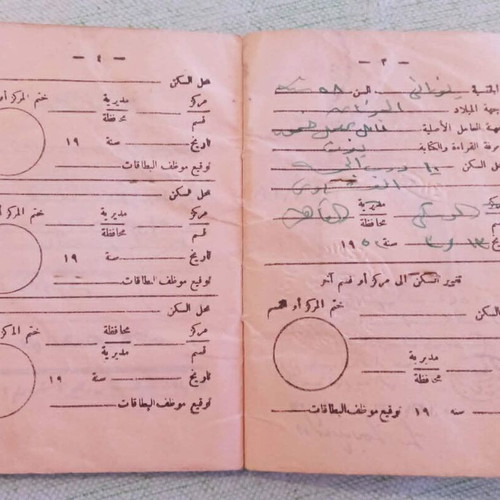 — ٣ —
الجنسية يوناني السن ٥٨ سنة
جهة الميلاد اليونان
مهنة العامل الأصلية
معرفة القراءة والكتابة
محل السكن ١٠
مركز الموسكي مديرية القاهرة
قسم محافظة
تاريخ ١٣ سنة ١٩٥
تغيير السكن الى مركز أو قسم آخر
السكن ختم المركز أو القسم
مديرية
محافظة
سنة ١٩ توقيع موظف البطاقات
— ٤ —
محل السكن
مركز مديرية ختم المركز أو
قسم محافظة
تاريخ سنة ١٩
توقيع موظف البطاقات
محل السكن
مركز مديرية ختم المركز أو
قسم محافظة
تاريخ سنة ١٩
توقيع موظف البطاقات
محل السكن
مركز محافظة ختم المركز
قسم مديرية
تاريخ سنة ١٩
توقيع موظف البطاقات